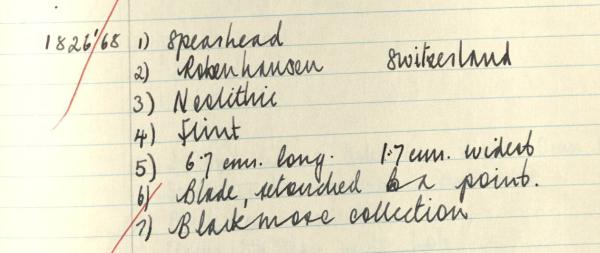 1826'68 1) Spearhead
2) Robenhausen Switzerland
3) Neolithic
4) Flint
5) 6.7 cms. long. 1.7 cms. widest
6) Blade, retouched to a point.
7) Blackmore collection